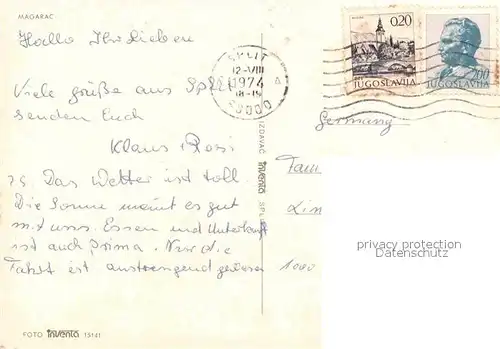 MAGARAC
Hallo Ihr Lieben
Viele Grüße aus Split
senden Euch
Klaus Rosi
Das Wetter ist toll.
Die Sonne meint es gut
mit uns. Essen und Unterkunft
ist auch prima. Nur die
Fahrt ist anstrengend gewesen
FOTO inventa 15141
IZDAVAČ inventa SPLIT
SPLIT
12-VIII
1974
18-19
58000
0,20
JUGOSLAVIJA
2,00
JUGOSLAVIJA
Germany
Fam
Lin
1000
privacy protection
Datenschutz